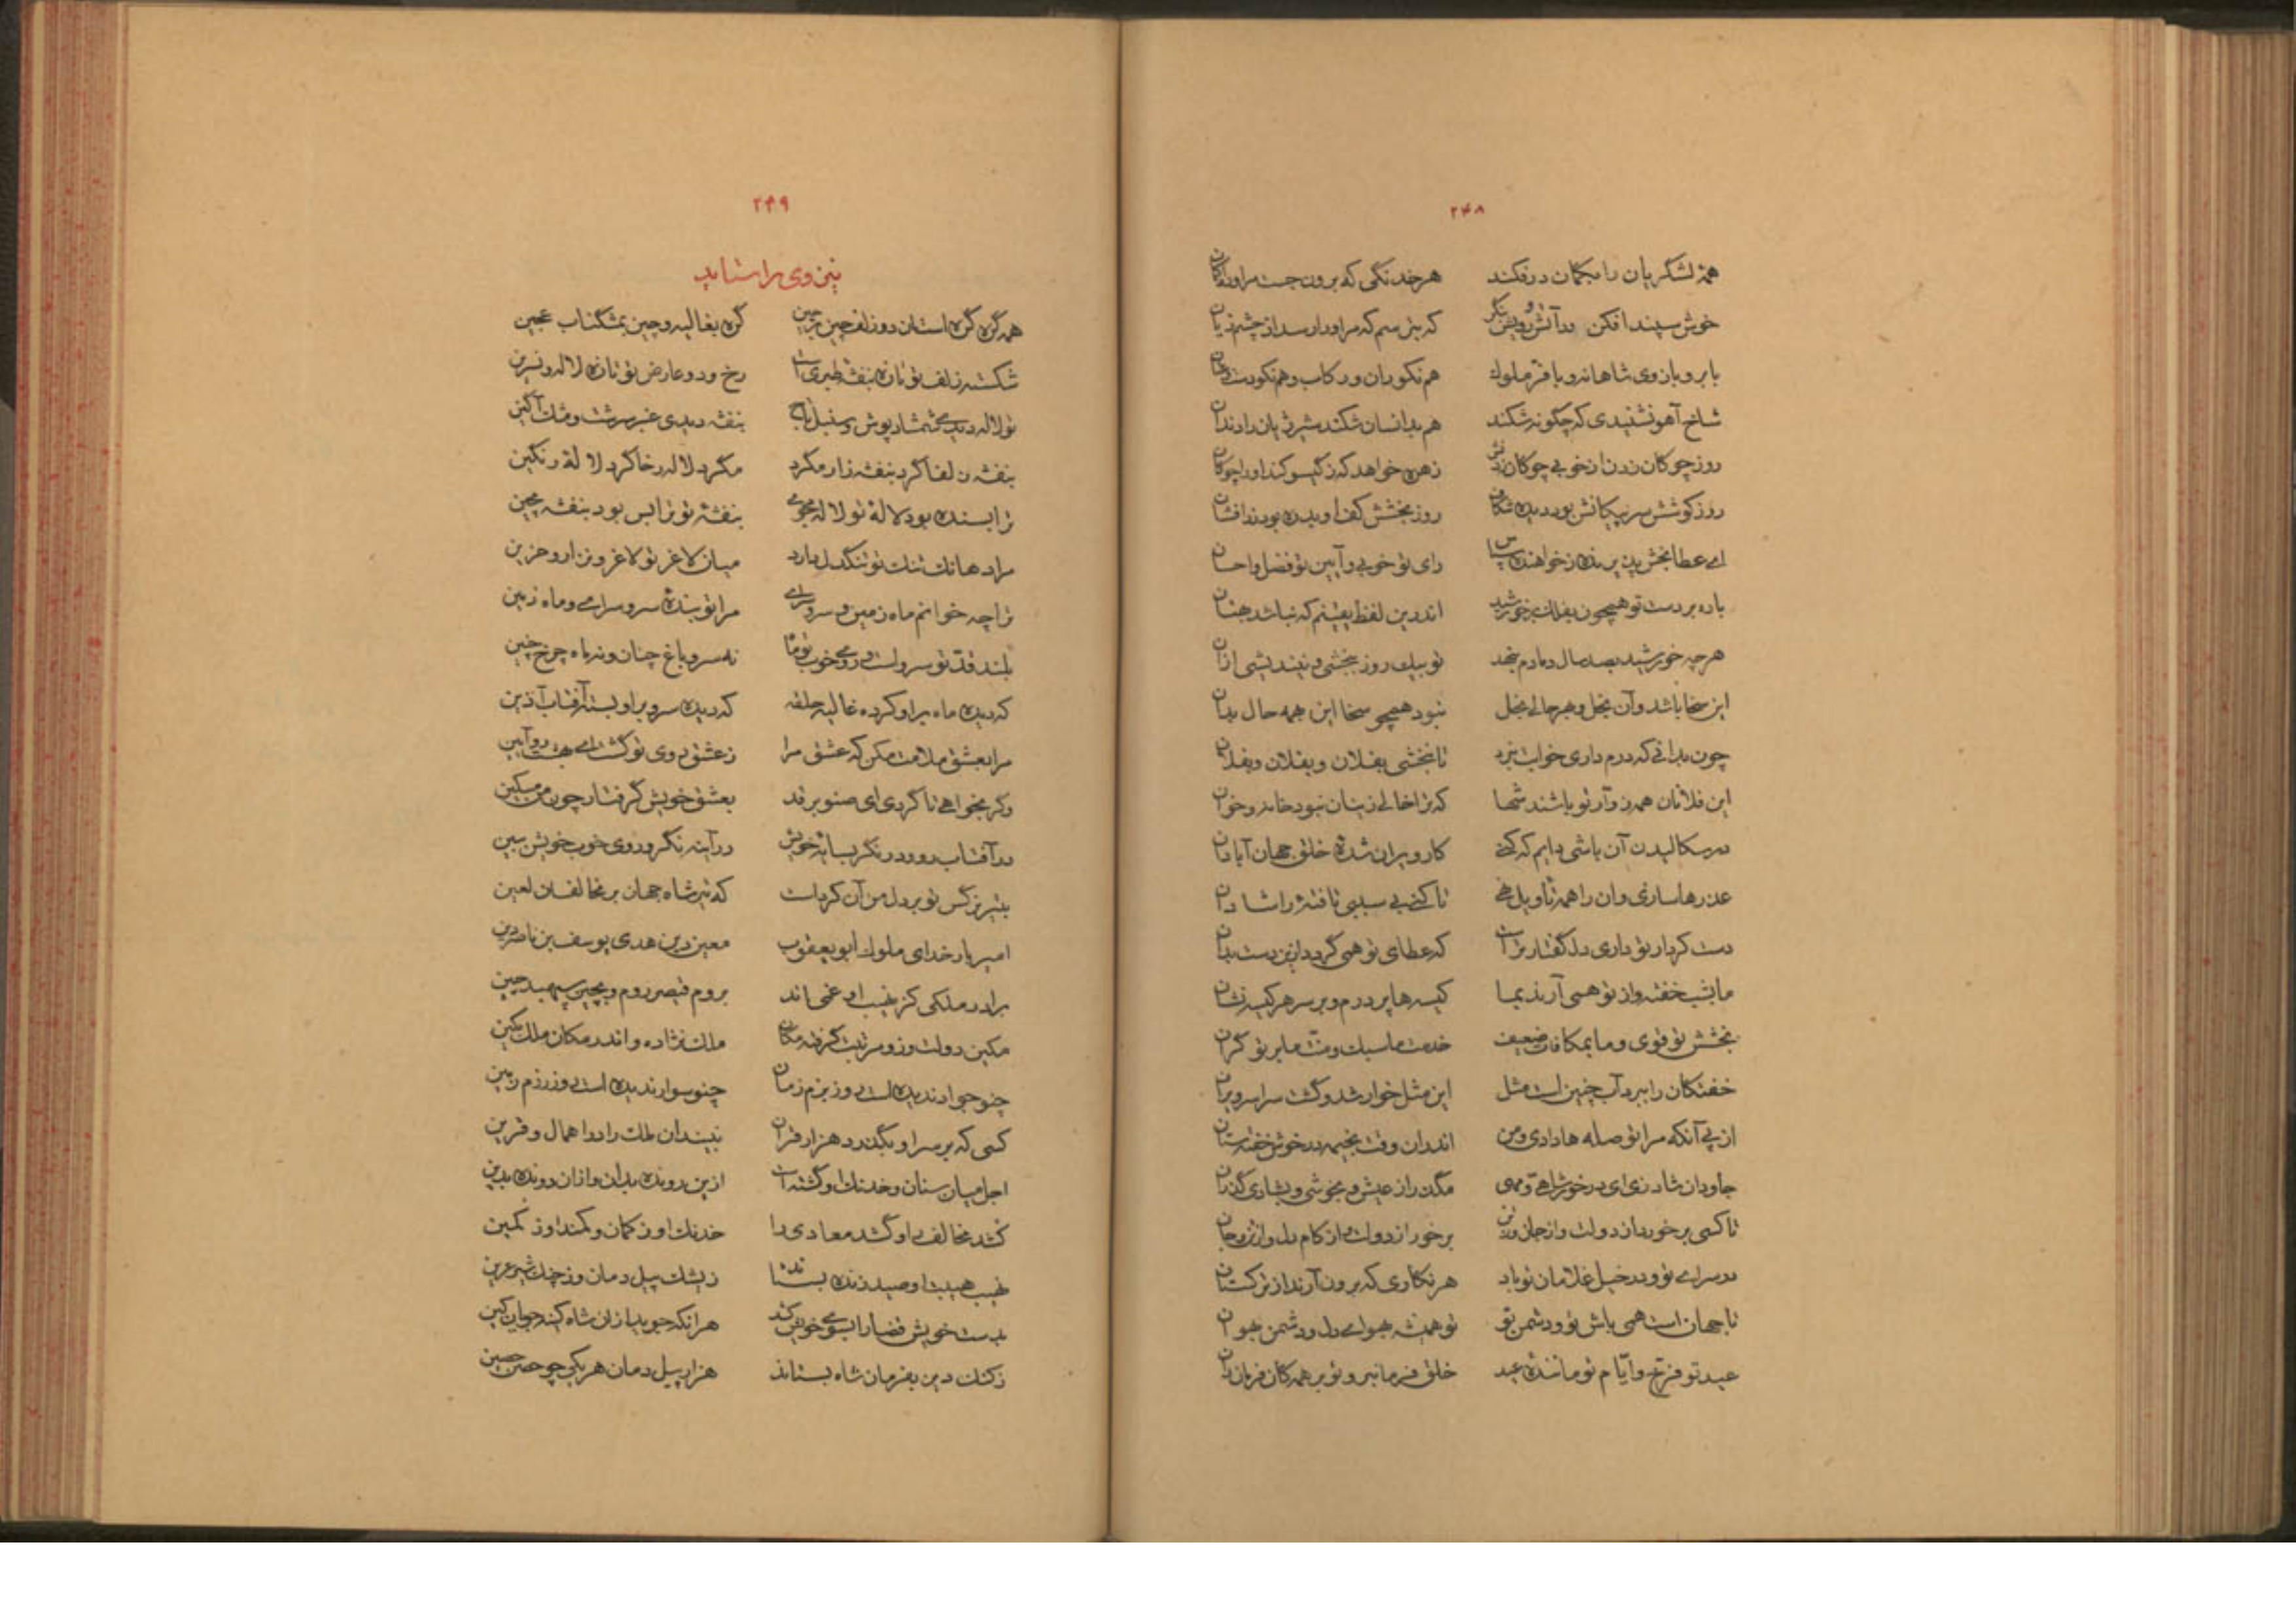 ۲۴۸
همهٔ لشگریان را بکمان درفکند هر خدنگی که برون جست مر او را ز کمان
خوش سپند افکن و در آتش رویش نگر که بترسم که مر او را رسد از چشم زیان
با بر و بازوی شاهانه و با فر ملوک هم نکو ران و رکاب و هم نکو دست و عنان
شاخ آهو نشنیدی که چگونه شکند هم بدانسان شکند شیر ژیان را دندان
روز چوکان زدن از خوبی چوکان زدنش زهره خواهد که ز گیسو کند او را چوکان
روز کوشش سر پیکانش بود دیده شکاف روز بخشش کف او بدره بود زر افشان
ای عطا بخش پذیرنده ز خواهنده سپاس رای تو خوبی و آیین تو فضل و احسان
باده بر دست تو همچون بفلک بر خورشید اندرین لفظ یقینم که نباشد هذیان
هرچه خورشید بصد سال دمادم بنهد تو بیک روز ببخشی و نیندیشی از آن
این سخا باشد و آن بخل و بهر حالی بخل نبود همچو سخا این همه حال بدان
چون بدانی که درم داری خوابت نبرد تا نبخشی بفلان و بفلان و بفلان
این فلانان همه زوار تو باشند شها که ترا خالی زیشان نبود خانه و خوان
در سکالیدن آن باشی دایم که کنی کار ویران شدهٔ خلق جهان آبادان
عذرها سازی و آن را همه تأویل نهی تا کنی بی سببی تافتهٔ را شادان
دست کردار تو داری دل گفتار تراست که عطای تو همی گردد ازین دست بدان
ما بشب خفته و از تو همی آرند بما کیسه ها پر درم و بر سر هر کیسه نشان
بخشش تو قوی و ما بمکافات ضعیف خدمت ما سبک و منّت ما بر تو گران
خفتکان را ببرد آب چنین است مثل این مثل خوار شد و گشت سراسر ویران
از پی آنکه مرا تو صله ها دادی و من اندران وقت بخیمه در خوش خفته ستان
جاودان شاد زی ای در خور شاهی و مهی مگذران از عیش و بخوشی و بشادی گذران
تا کسی برخورد از دولت و از جان و ز تن برخور از دولت و از کام دل و از تن و جان
در سرای تو و در خیل غلامان تو باد هر نکاری که برون آرند از ترکستان
تا جهان است همی باش تو و دشمن تو تو همیشه بهوای دل و دشمن بهوان
عید تو فرّخ و ایّام تو مانندهٔ عید خلق فرمانبر و تو بر همه کان فرمان ران
۲۴۹
نیز وی را ستاید
همه گره گره است آن دو زلف چین بر چین گره بغالیه و چین بمشگناب عجین
شکسته زلف تو تازه بنفشهٔ طبری است رخ و دو عارض تو تازه لاله و نسرین
تو لاله دیدی شمشاد پوش و سنبل تاج بنفشه دیدی عنبر سرشت و مشک آگین
بنفشه زلفا گرد بنفشه زار مگرد مگرد لاله رخا گرد لالهٔ رنگین
ترا بسنده بود لالهٔ تو لاله مجوی بنفشهٔ تو ترا بس بود بنفشه مچین
مرا دهانک تنک تو تنگدل دارد میان لاغر تو لاغر و نزار و حزین
ترا چه خوانم ماه زمین و سرو سرای مرا تو بندهٔ سرو سرای و ماه زمین
بلند قد تو سرو است و روی خوب تو ماه نه سرو باغ چنان و نه ماه چرخ چنین
که دیده ماه بر او کرده غالیه حلقه که دیده سرو بر او بسته آفتاب آذین
مرا بعشق ملامت مکن که عشق مرا ز عشق روی تو گشت
وگر بخواهی تا گردی ای صنوبر قد بعشق خویش گرفتار چون من مسکین
در آفتاب رو و در نگر بسایهٔ خویش در آینه نگر و روی خوب خویش ببین
بتیر نرگس تو بر دل من آن کرد است که تیر شاه جهان بر مخالفان لعین
امیر بار خدای ملوک ابو یعقوب معین دین هدی یوسف بن ناصر دین
برادر ملکی کز نهیب او غمی اند بروم قیصر روم و بچین سپهبد چین
مکین دولت وزو مرتبت گرفته مکان ملک نژاده و اندر مکان ملک مکین
چنو جواد ندیده است روز بزم زمان چنو سوار ندیده است روز رزم زمین
کسی که بر سر او بگذرد هزار قران نبیند آن ملک راد را همال و قرین
اجل میان سنان و خدنک او گشته است ازین رونده بدان و ازان رونده بدین
کشد مخالف را و کشد معادی را خدنک او ز کمان و کمند او ز کمین
نهیب هیبت او صید زنده بستاند ز یشک پیل دمان و ز چنک شیر عرین
بدست خویش قضا را بسوی خویش کشد هر آنکه جوید ازان شاه کینه جویان کین
ز کنک دین بفرمان شاه بستاند هزار پیل دمان هر یکی چو حصن حصین